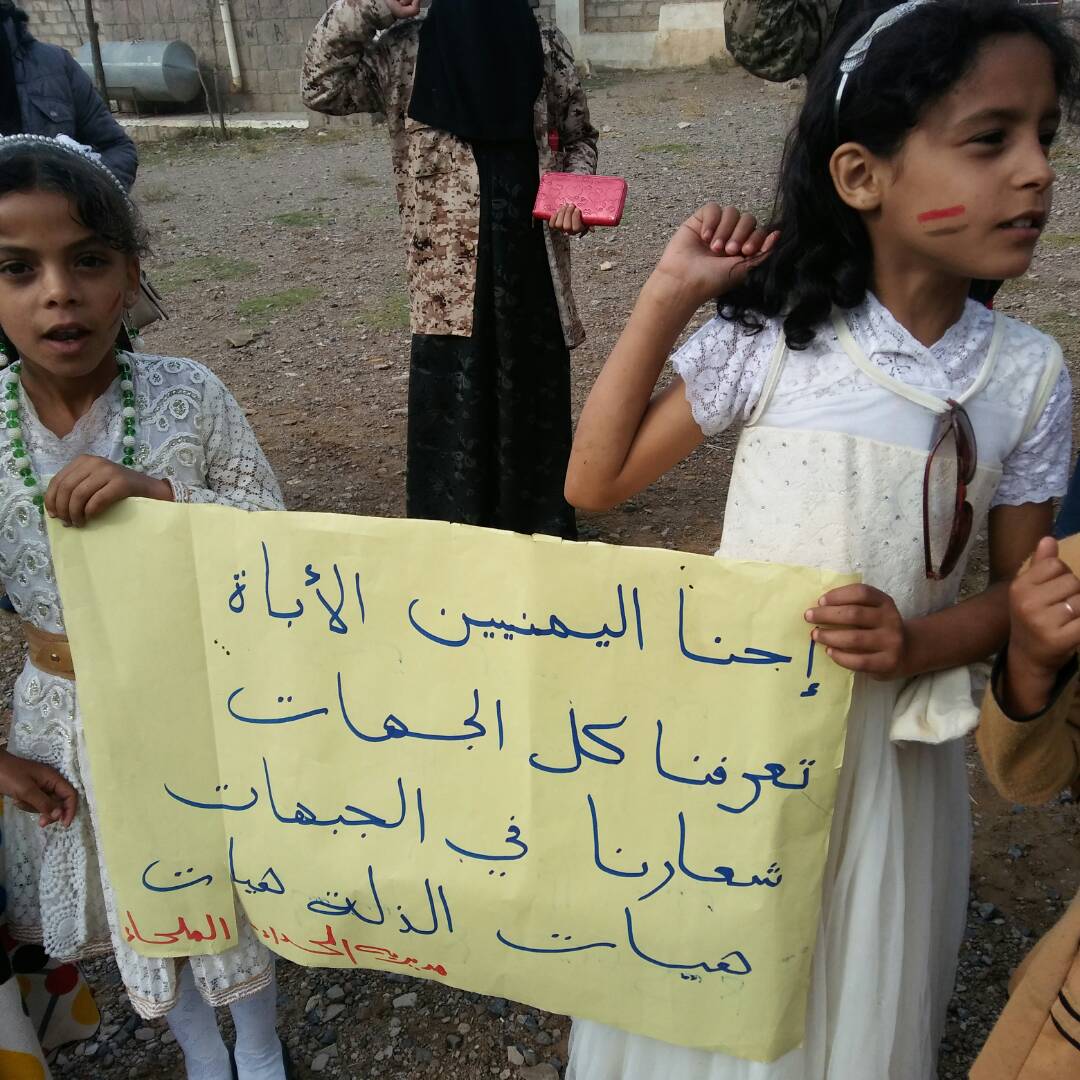 إحنا اليمنيين الأباة
تعرفنا كل الجهات
شعارنا في الجبهات
هيهات الذلة هيهات
مديرية الحداء الملحاء